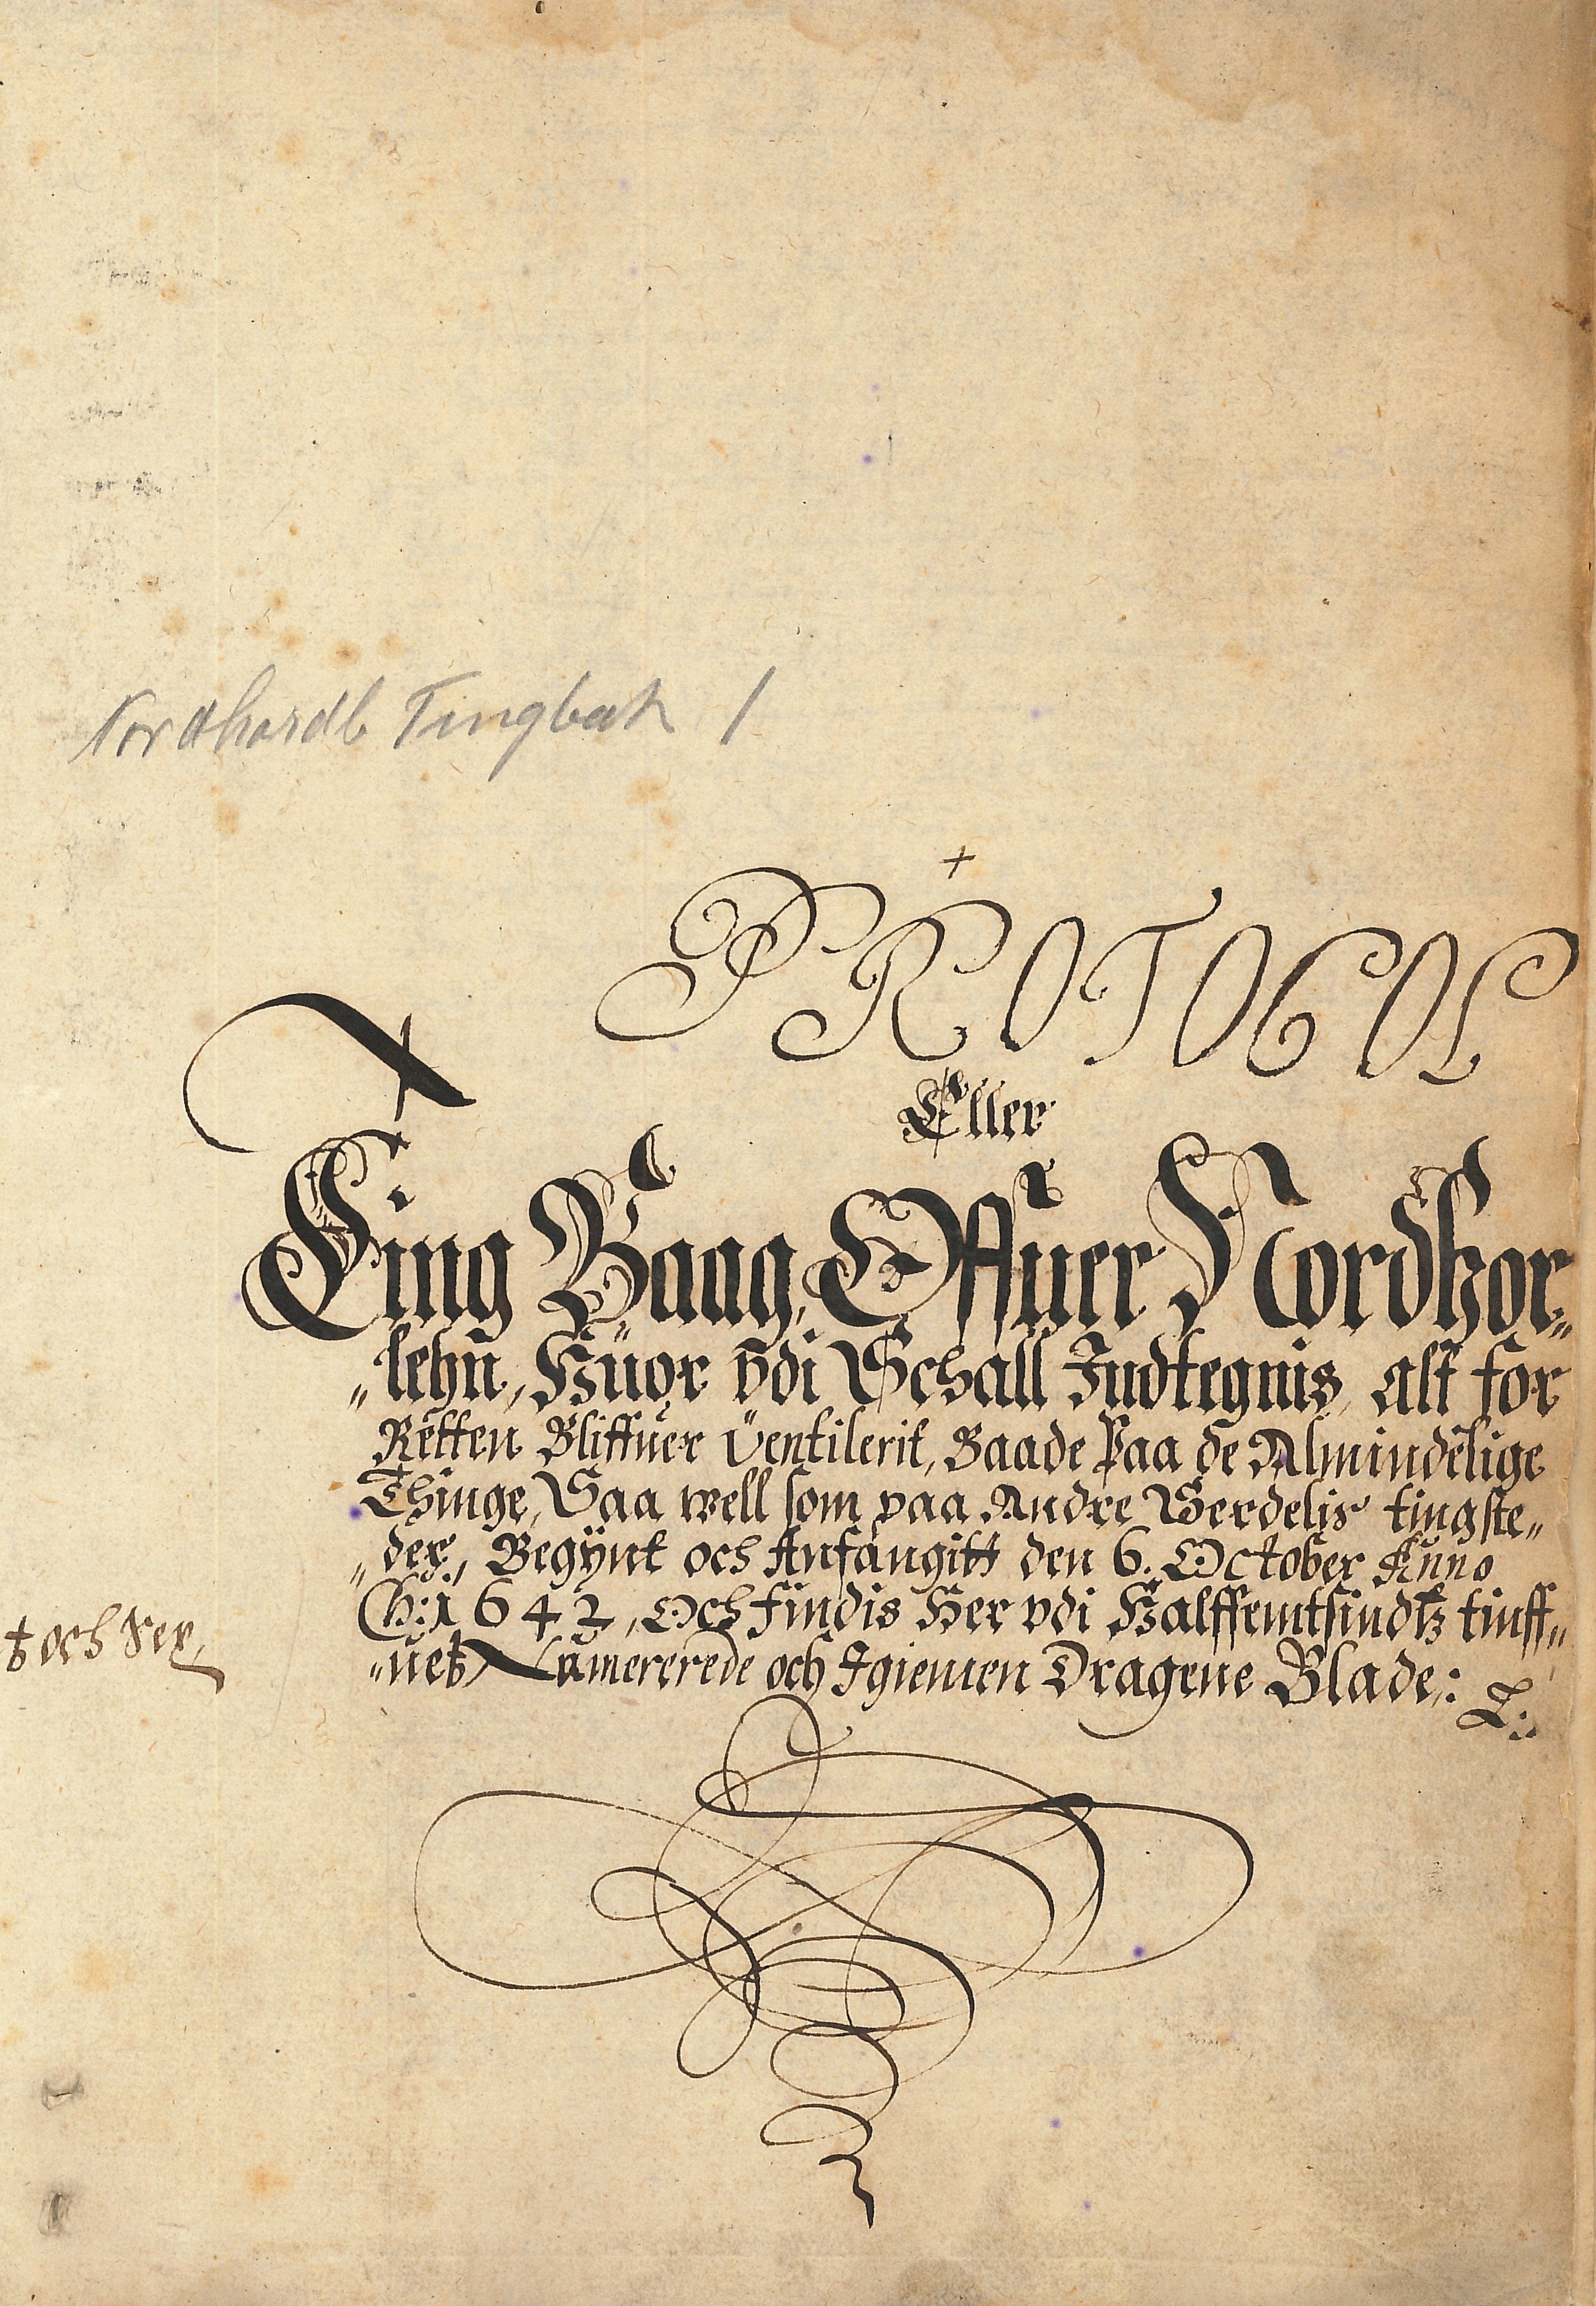 Nordhordl Tingbok 1
PROTOCOL
Eller
Ting Baag, Offuer Nordhor„
„lehn, Huor vdi Schall Indtegnis, alt for
Retten Bliffuer Ventilerit, Baade Paa de Almindelige
Thinge, Saa well som paa Andre Werdelis tingste„
„der, Begÿnt och Anfangitt den 6. October Anno
Ch: 1642, Och findis Her vdi Halffemtsindtz tiuff„
„uetz Numererede och Igiemen Dragene Blade:
‡ och Sex,